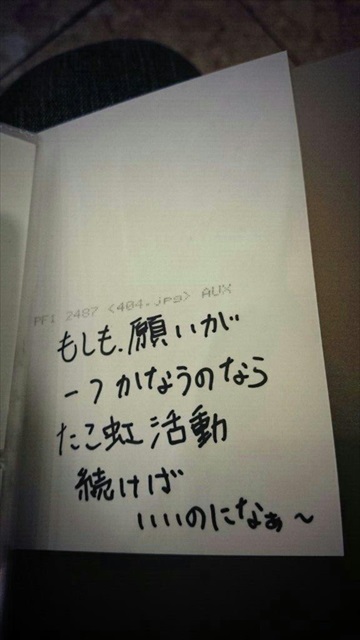 PF1 2487 <404.jpg> AUX
もしも、願いが
一つかなうのなら
たこ虹活動
続けば
いいのになぁ〜